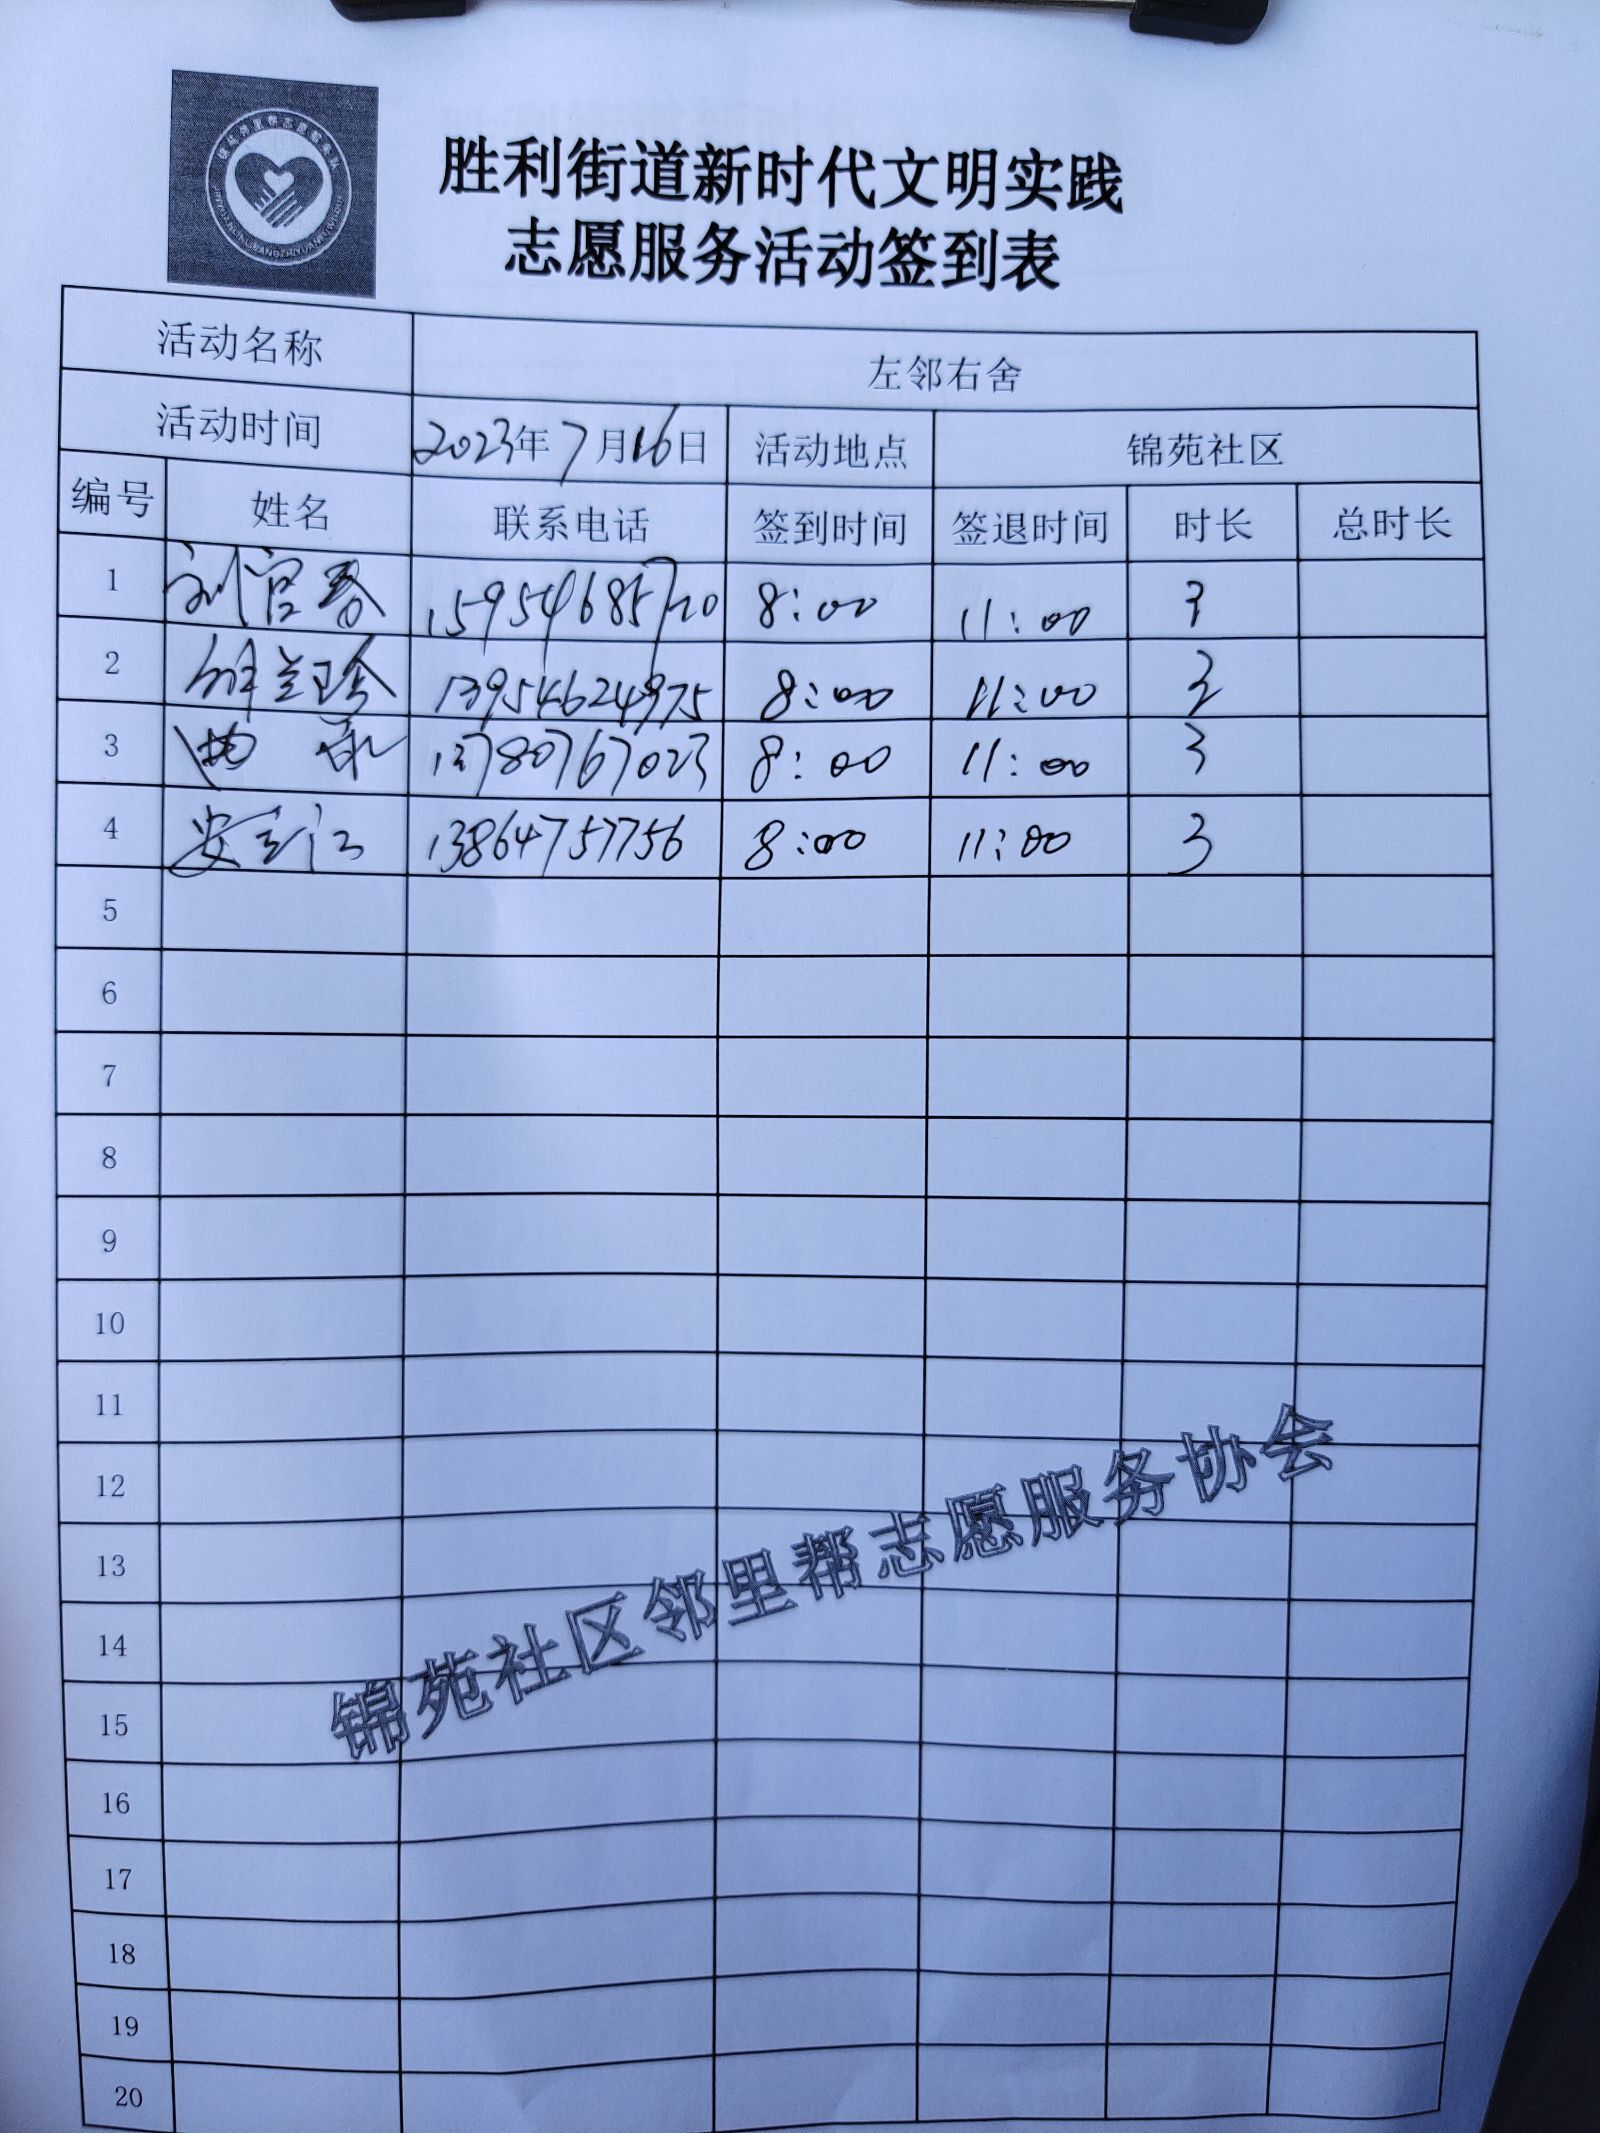 胜利街道新时代文明实践
志愿服务活动签到表
活动名称 左邻右舍
活动时间 2023年7月16日 活动地点 锦苑社区
编号 姓名 联系电话 签到时间 签退时间 时长 总时长
1 刘官春 15954685720 8:00 11:00 3
2 薛兰珍 13954624975 8:00 11:00 3
3 曲 13780767023 8:00 11:00 3
4 安玉江 13864757756 8:00 11:00 3
5
6
7
8
9
10
11
12
13
14
15
16
17
18
19
20
锦苑社区邻里帮志愿服务协会